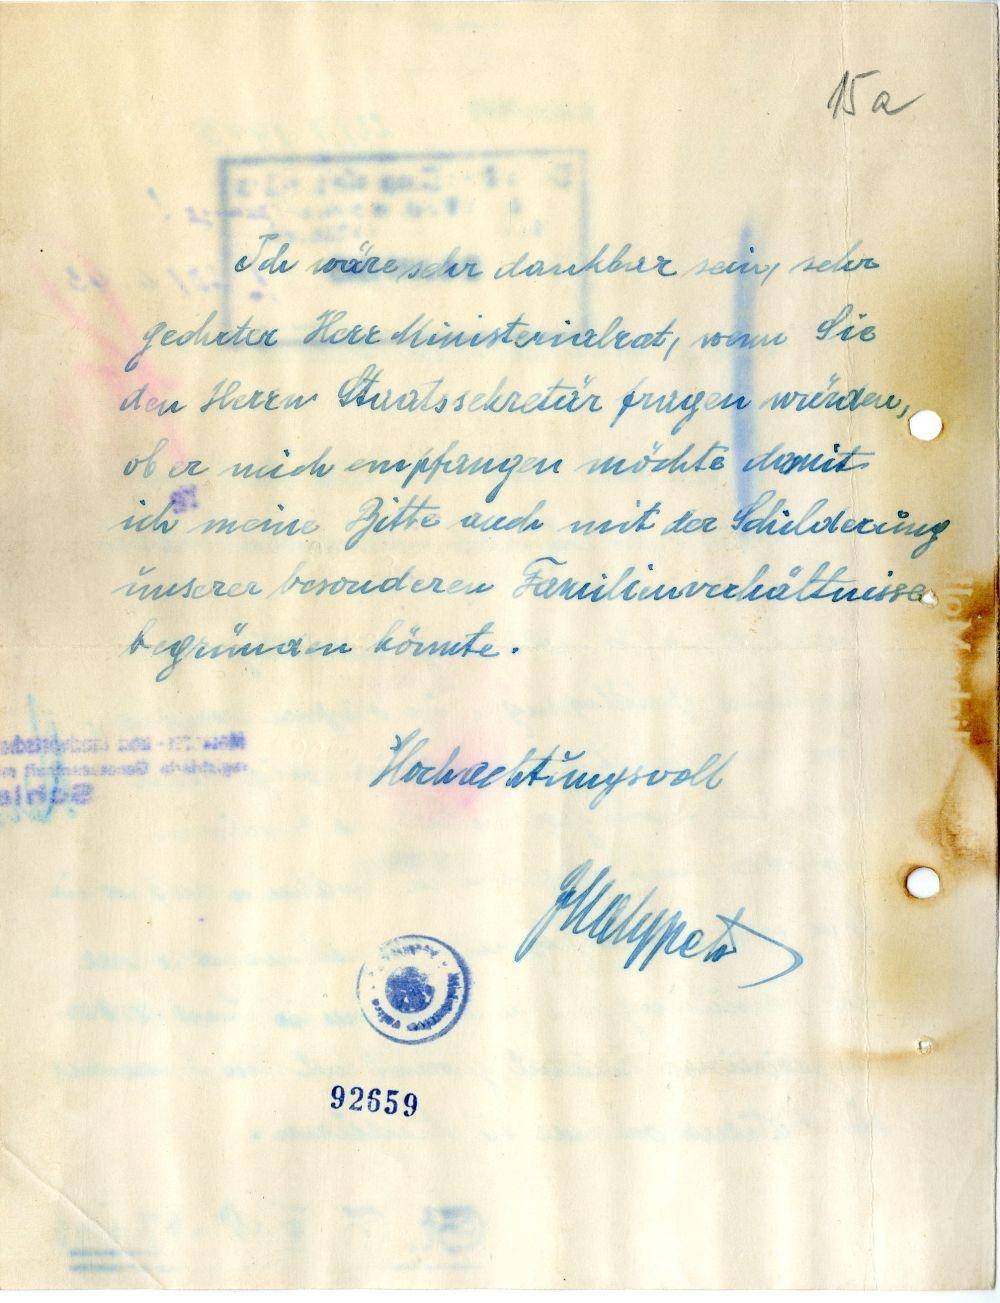 15a
Ich wäre sehr dankbar sein, sehr
geehrter Herr Ministerialrat, wenn Sie
den Herrn Staatssekretär fragen würden,
ob er mich empfangen möchte damit
ich meine Bitte auch mit der Schilderung
unserer besonderen Familienverhältnisse
begründen könnte.
Hochachtungsvoll
92659